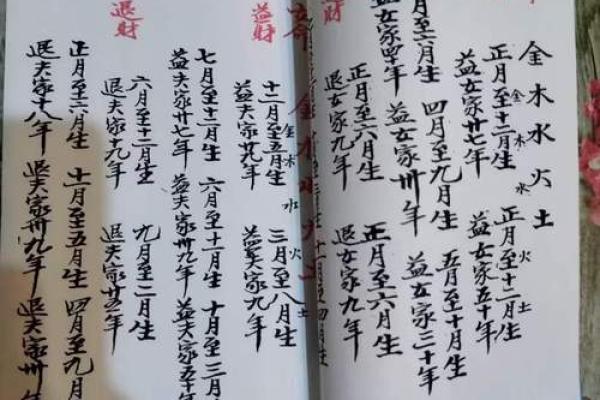 金木水火土
正月至十二月生 正月至十二月生
金木水 火土
益女家廿七年 益女家五十年
至六月生 四月至九月生 五月至十月生
益女家 年 益女家卅年 益女家三十年
正月至六月生 正月至六月生
退女家九年 退女家九年
財
命
金木水 火土
十二月至五月生 三月至八月生
益財
益夫家廿九年 九年
七月至十二月生 六月至十一月生 十月至三月
益夫家卅七年 益夫家卅九年 益夫家五十
六月至十二月生 九月至二月生
退財
退夫家十九年 退夫家廿五年
正月至六月生 十一月至五月生 四月至九月
退夫家十八年 退夫家卅九年 退夫家卅